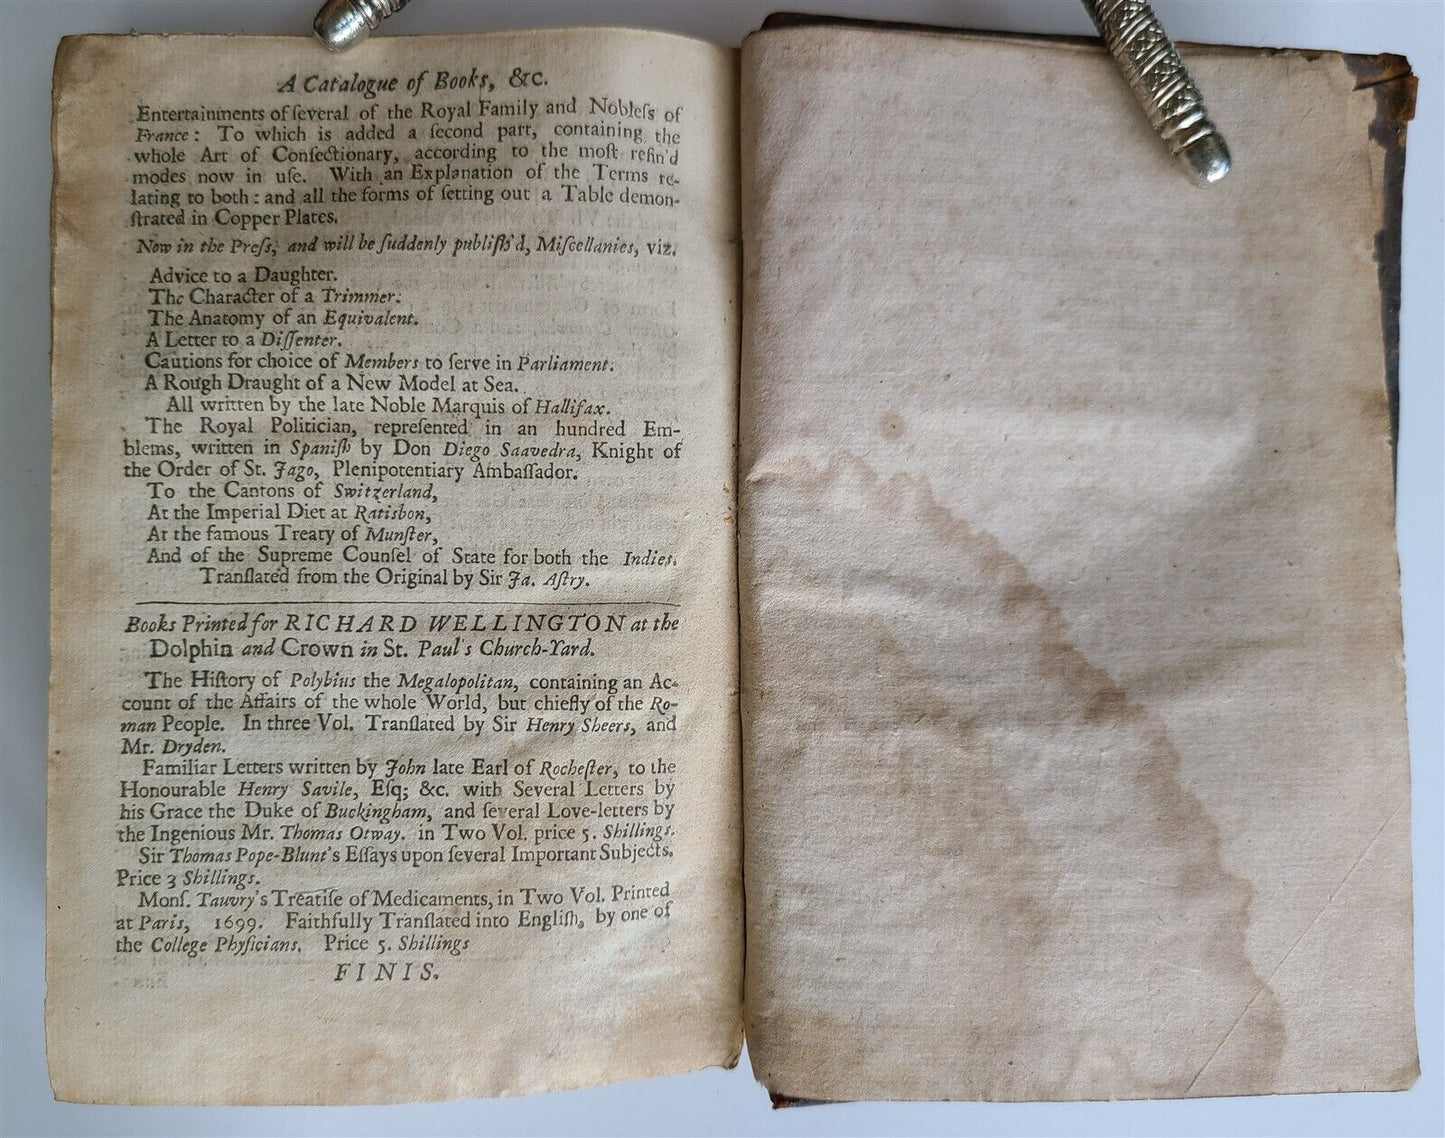 A Catalogue of Books, &c.
Entertainments of ſeveral of the Royal Family and Nobleſs of
France : To which is added a ſecond part, containing the
whole Art of Confectionary, according to the moſt refin'd
modes now in uſe. With an Explanation of the Terms re-
lating to both : and all the forms of ſetting out a Table demon-
ſtrated in Copper Plates.
Now in the Preſs, and will be ſuddenly publiſh'd, Miſcellanies, viz.
Advice to a Daughter.
The Character of a Trimmer.
The Anatomy of an Equivalent.
A Letter to a Diſſenter.
Cautions for choice of Members to ſerve in Parliament.
A Rough Draught of a New Model at Sea.
All written by the late Noble Marquis of Hallifax.
The Royal Politician, repreſented in an hundred Em-
blems, written in Spaniſh by Don Diego Saavedra, Knight of
the Order of St. Jago, Plenipotentiary Ambaſſador.
To the Cantons of Switzerland,
At the Imperial Diet at Ratisbon,
At the famous Treaty of Munſter,
And of the Supreme Counſel of State for both the Indies.
Tranſlated from the Original by Sir Ja. Aſtry.
Books Printed for RICHARD WELLINGTON at the
Dolphin and Crown in St. Paul's Church-Yard.
The Hiſtory of Polybius the Megalopolitan, containing an Ac-
count of the Affairs of the whole World, but chiefly of the Ro-
man People. In three Vol. Tranſlated by Sir Henry Sheers, and
Mr. Dryden.
Familiar Letters written by John late Earl of Rocheſter, to the
Honourable Henry Savile, Eſq; &c. with Several Letters by
his Grace the Duke of Buckingham, and ſeveral Love-letters by
the Ingenious Mr. Thomas Otway. in Two Vol. price 5. Shillings.
Sir Thomas Pope-Blunt's Eſſays upon ſeveral Important Subjects.
Price 3 Shillings.
Monſ. Tauvry's Treatiſe of Medicaments, in Two Vol. Printed
at Paris, 1699. Faithfully Tranſlated into Engliſh, by one of
the College Phyſicians. Price 5. Shillings
FINIS.